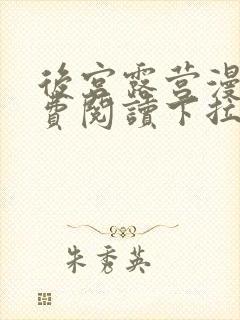 後宮露营漫
費閱讀下拉
朱秀英